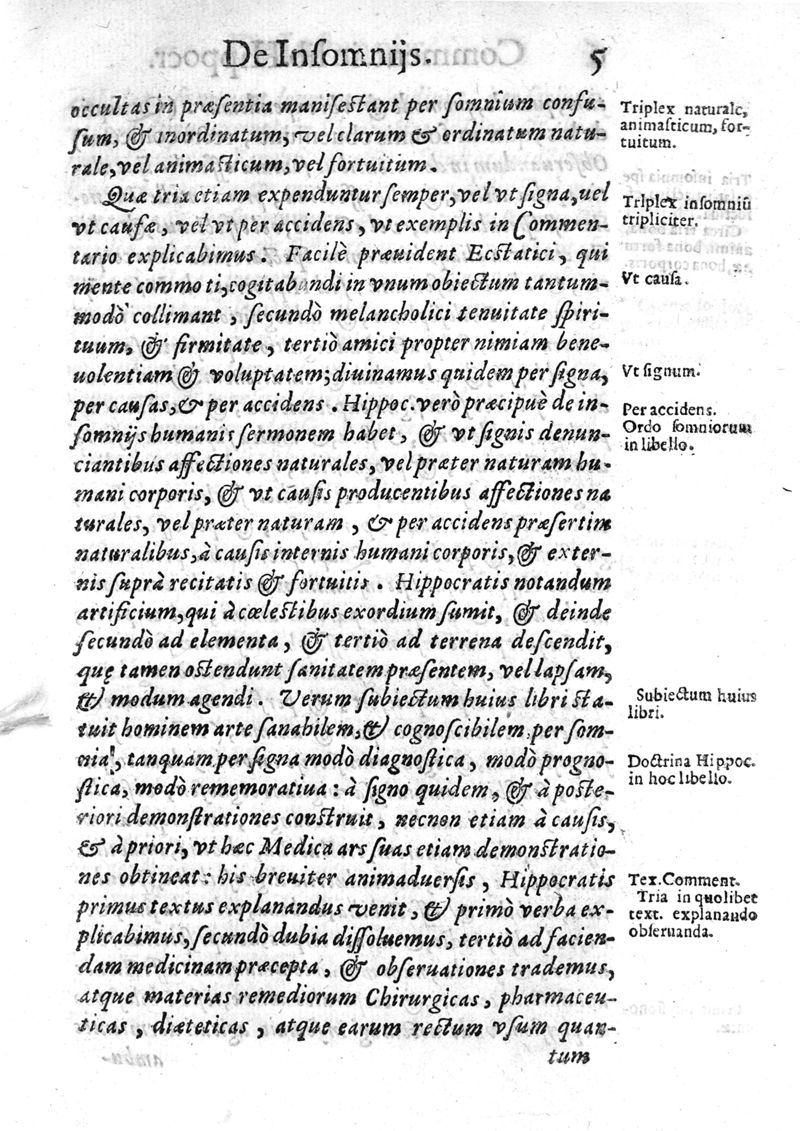 De Inſomnijs. 5
occultas in præſentia manifeſtant per ſomnium confu-
ſum, & inordinatum, vel clarum & ordinatum natu-
rale, vel animaſticum, vel fortuitum.
Triplex naturale,
animaſticum, for-
tuitum.
Quæ tria etiam expenduntur ſemper, vel vt ſigna, uel
vt cauſæ, vel vt per accidens, vt exemplis in Commen-
tario explicabimus. Facilè præuident Ecſtatici, qui
mente commoti, cogitabundi in vnum obiectum tantum-
modò collimant, ſecundò melancholici tenuitate ſpiri-
tuum, & firmitate, tertiò amici propter nimiam bene-
uolentiam & voluptatem; diuinamus quidem per ſigna,
per cauſas, & per accidens. Hippoc. verò præcipuè de in-
ſomnijs humanis ſermonem habet, & vt ſignis denun-
ciantibus affectiones naturales, vel præter naturam hu-
mani corporis, & vt cauſis producentibus affectiones na
turales, vel præter naturam, & per accidens præſertim
naturalibus, à cauſis internis humani corporis, & exter-
nis ſuprà recitatis & fortuitis. Hippocratis notandum
artificium, qui à cœleſtibus exordium ſumit, & deinde
ſecundò ad elementa, & tertiò ad terrena deſcendit,
quę tamen oſtendunt ſanitatem præſentem, vel lapſam,
& modum agendi. Verum ſubiectum huius libri ſta-
tuit hominem arte ſanabilem, & cognoſcibilem per ſom-
nia, tanquam per ſigna modò diagnoſtica, modò progno-
ſtica, modò rememoratiua: à ſigno quidem, & à poſte-
riori demonſtrationes conſtruit, necnon etiam à cauſis,
& à priori, vt hæc Medica ars ſuas etiam demonſtratio-
nes obtineat: his breuiter animaduerſis, Hippocratis
primus textus explanandus venit, & primò verba ex-
plicabimus, ſecundò dubia diſſoluemus, tertiò ad facien-
dam medicinam præcepta, & obſeruationes trademus,
atque materias remediorum Chirurgicas, pharmaceu-
ticas, diæteticas, atque earum rectum vſum quan-
tum
Triplex inſomniũ
tripliciter.
Vt cauſa.
Vt ſignum.
Per accidens.
Ordo ſomniorum
in libello.
Subiectum huius
libri.
Doctrina Hippoc.
in hoc libello.
Tex. Comment.
Tria in quolibet
text. explanando
obſeruanda.